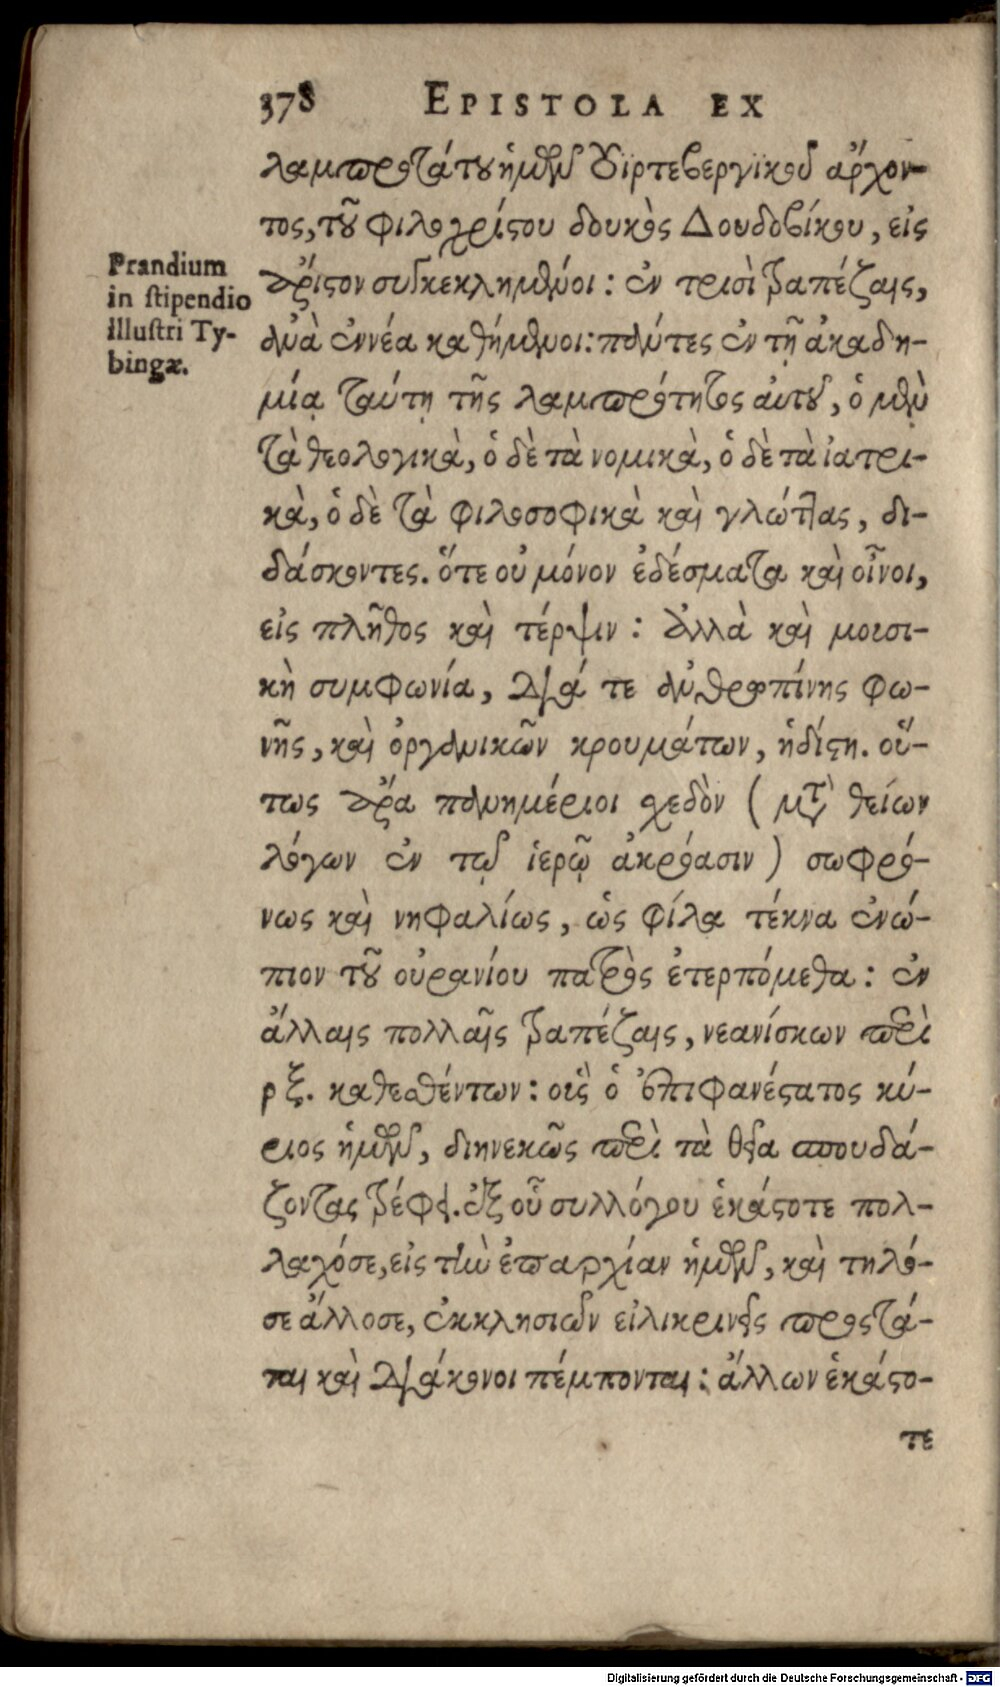 378 EPISTOLA EX
λαμπροτάτου ἡμῶν Οὐϊρτεβεργϊκοῦ ἄρχον-
τος, τοῦ φιλοχρίστου δουκὸς Δουδοβίκου, εἰς
Prandium
in stipendio
illustri Ty-
bingæ.
ἄριστον συγκεκλημένοι: ἐν τρισὶ τραπέζαις,
ἀνὰ ἐννέα καθήμενοι: πάντες ἐν τῇ ἀκαδη-
μίᾳ ταύτῃ τῆς λαμπρότητος αὐτοῦ, ὁ μὲν
τὰ θεολογικὰ, ὁ δὲ τὰ νομικὰ, ὁ δὲ τὰ ἰατρι-
κὰ, ὁ δὲ τὰ φιλοσοφικὰ καὶ γλώττας, δι-
δάσκοντες. ὅτε οὐ μόνον ἐδέσματα καὶ οἶνοι,
εἰς πλῆθος καὶ τέρψιν: ἀλλὰ καὶ μουσι-
κὴ συμφωνία, διά τε ἀνθρωπίνης φω-
νῆς, καὶ ὀργανικῶν κρουμάτων, ἡδίστη. οὕ-
τως ἄρα πανημέριοι σχεδὸν (μετὰ θείων
λόγων ἐν τῷ ἱερῷ ἀκρόασιν) σωφρό-
νως καὶ νηφαλίως, ὡς φίλα τέκνα ἐνώ-
πιον τοῦ οὐρανίου πατρὸς ἐτερπόμεθα: ἐν
ἄλλαις πολλαῖς τραπέζαις, νεανίσκων περὶ
ρξ. καθεσθέντων: οἳς ὁ ἐπιφανέστατος κύ-
ριος ἡμῶν, διηνεκῶς περὶ τὰ θεῖα σπουδά-
ζοντας τρέφει. ἐξ οὗ συλλόγου ἑκάστοτε πολ-
λαχόσε, εἰς τὴν ἐπαρχίαν ἡμῶν, καὶ τηλό-
σε ἄλλοσε, ἐκκλησιῶν εἰλικρινεῖς προστά-
ται καὶ διάκονοι πέμπονται: ἄλλων ἑκάστο-
τε
Digitalisierung gefördert durch die Deutsche Forschungsgemeinschaft - DFG